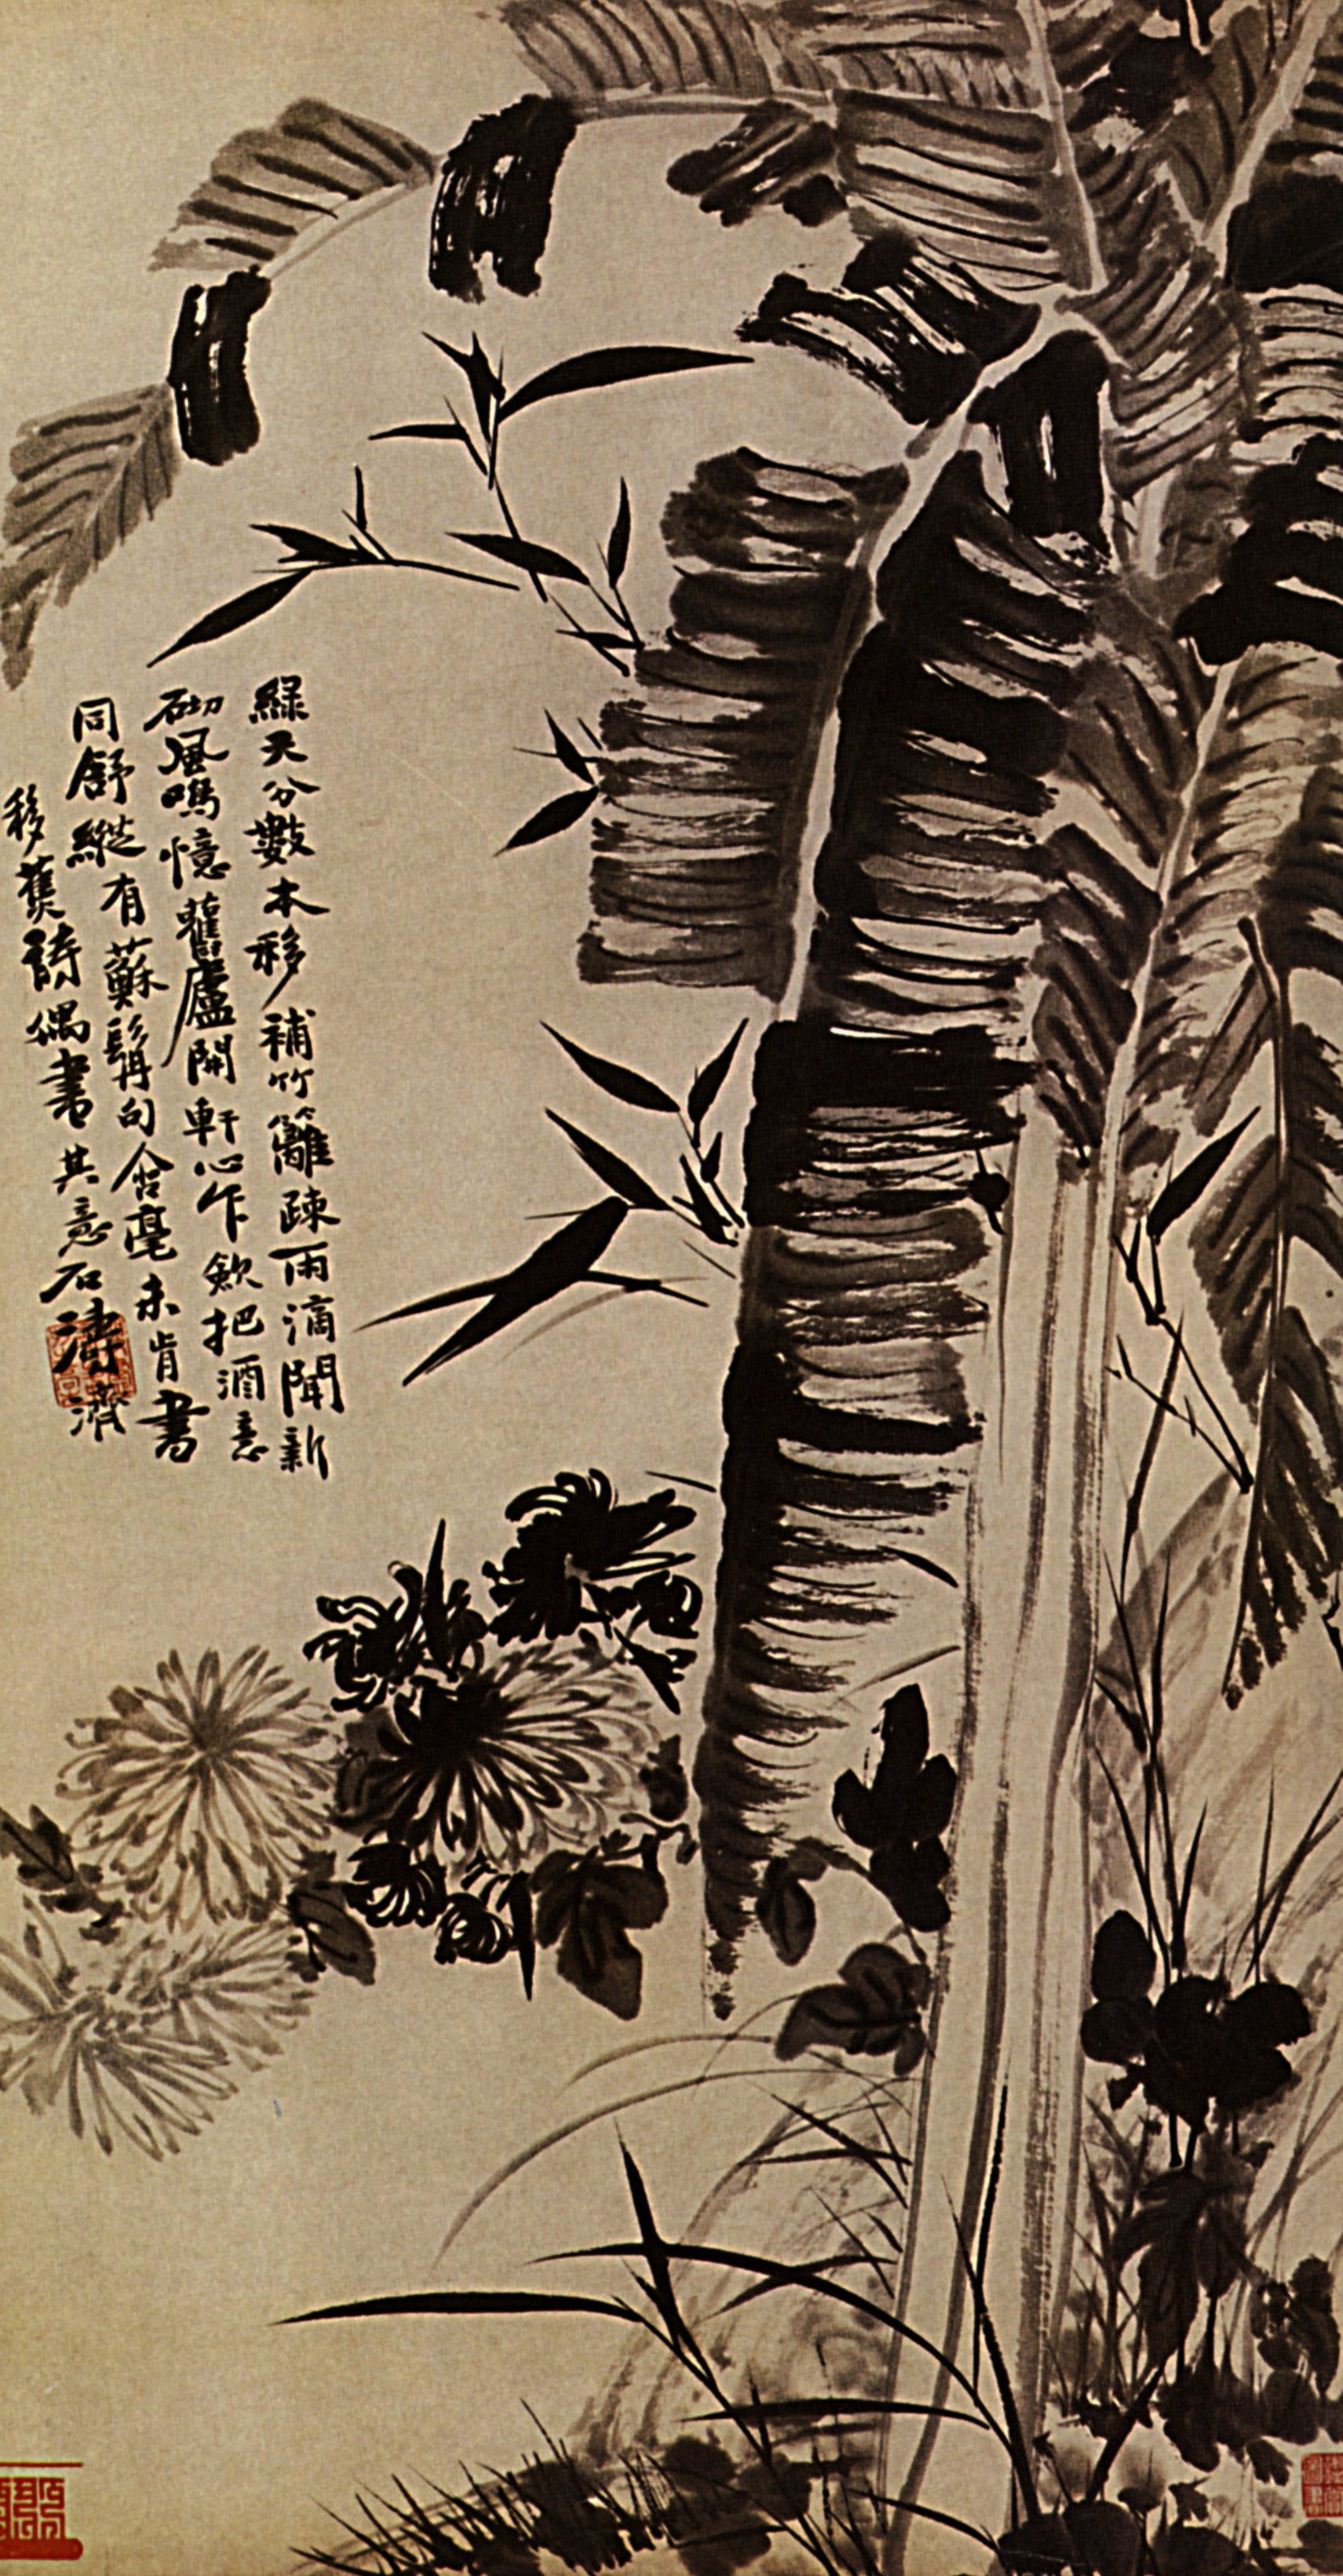 綠天分數本移補竹籬疎雨滴聞新
砌風鳴憶舊廬開軒心乍飲把酒意
同舒縱有蘇髯句含毫未肯書
移蕉詩偶書其意石濤濟